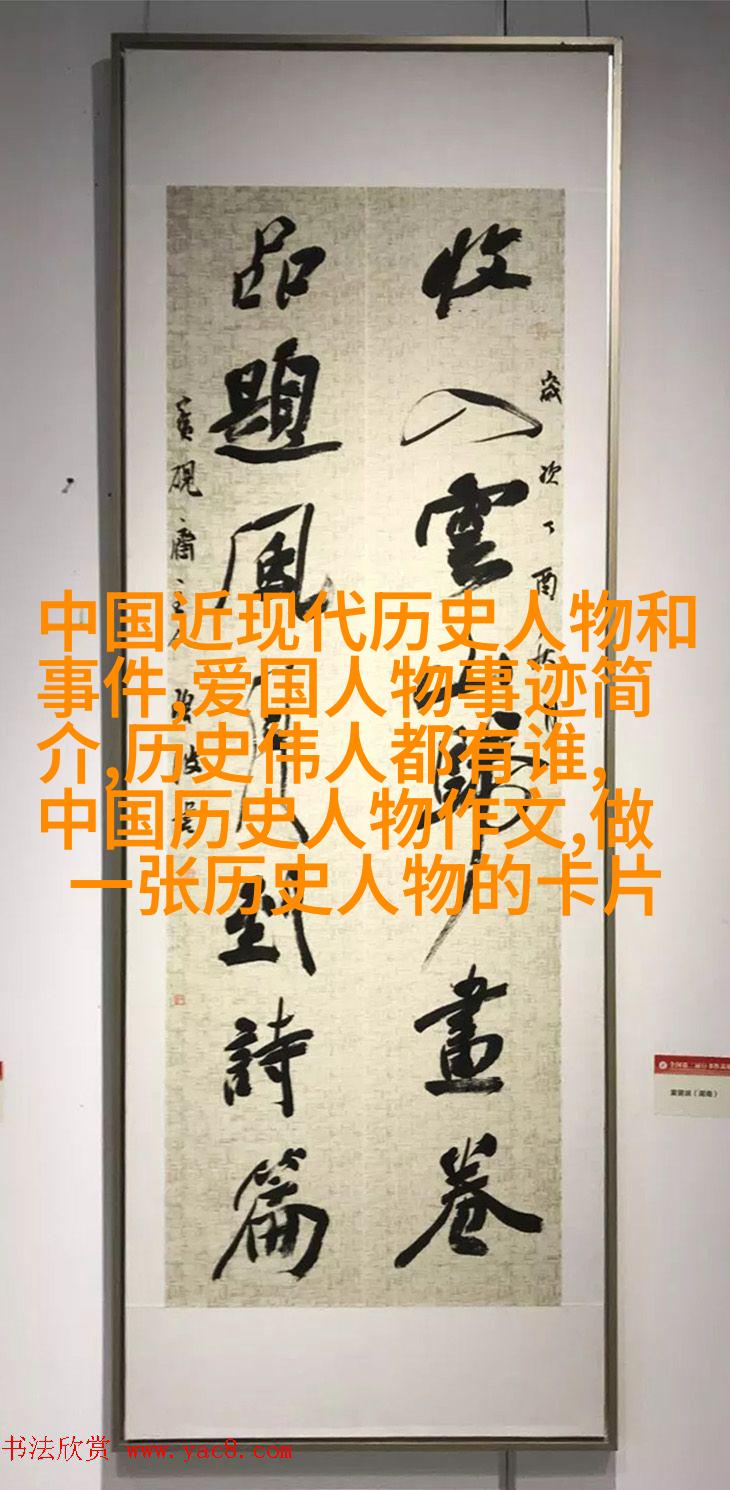 收入雲山歸畫卷
品題風月到詩篇
中国近现代历史人物和
事件,爱国人物事迹简
介,历史伟人都有谁,
中国历史人物作文,做
一张历史人物的卡片
书法欣赏 www.yac8.com